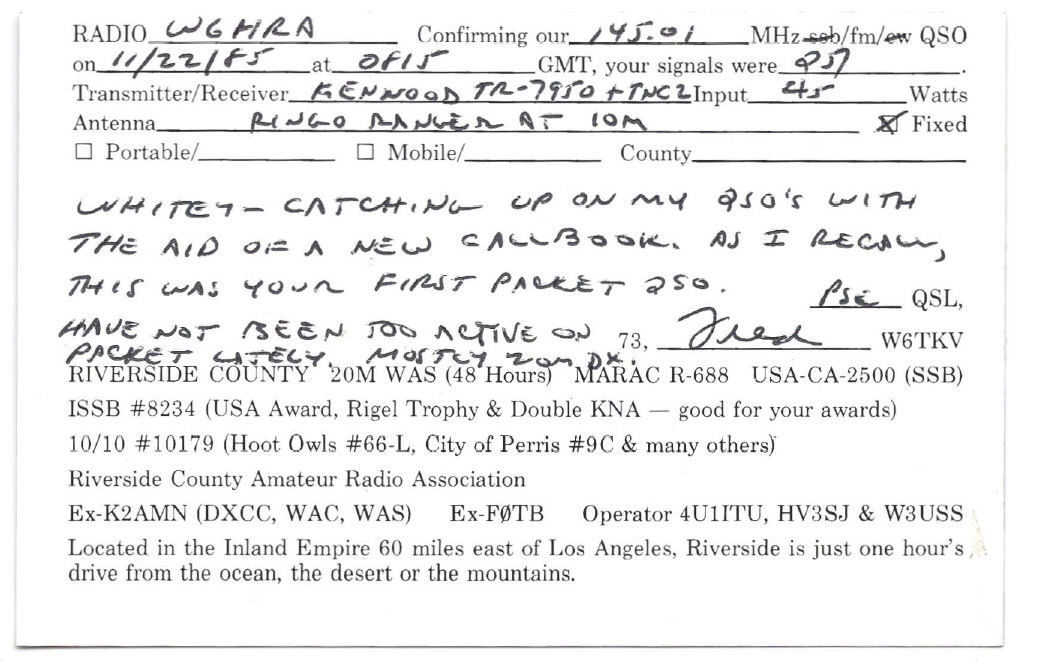 RADIO W6HRA Confirming our 145.01 MHz ssb/fm/cw QSO
on 11/22/85 at 0815 GMT, your signals were Q5.
Transmitter/Receiver KENWOOD TR-7950 + TNC2 Input 45 Watts
Antenna RINGO RANGER AT 10M ☒ Fixed
☐ Portable/ ☐ Mobile/ County
WHITEY – CATCHING UP ON MY QSO'S WITH
THE AID OF A NEW CALLBOOK. AS I RECALL,
THIS WAS YOUR FIRST PACKET QSO. PSE QSL,
HAVE NOT BEEN TOO ACTIVE ON 73, Fred W6TKV
PACKET LATELY. MOSTLY 20M DX.
RIVERSIDE COUNTY 20M WAS (48 Hours) MARAC R-688 USA-CA-2500 (SSB)
ISSB #8234 (USA Award, Rigel Trophy & Double KNA — good for your awards)
10/10 #10179 (Hoot Owls #66-L, City of Perris #9C & many others)
Riverside County Amateur Radio Association
Ex-K2AMN (DXCC, WAC, WAS) Ex-FØTB Operator 4U1ITU, HV3SJ & W3USS
Located in the Inland Empire 60 miles east of Los Angeles, Riverside is just one hour's
drive from the ocean, the desert or the mountains.